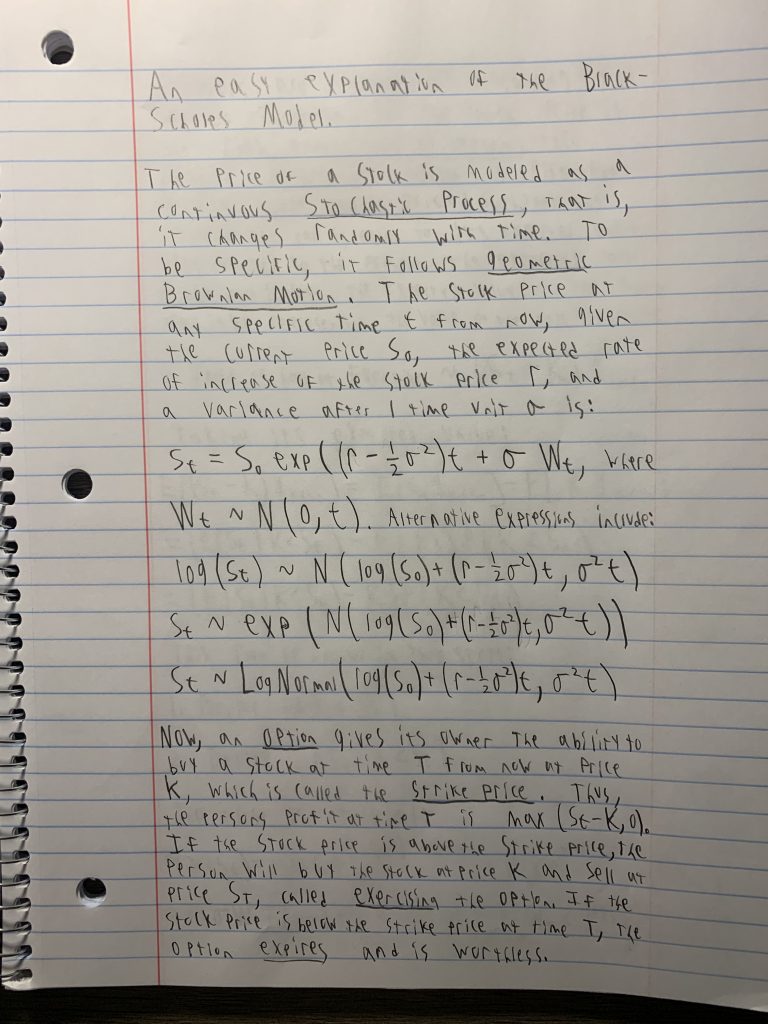 An easy explanation of the Black-
Scholes Model.
The price of a stock is modeled as a
continuous stochastic process, that is,
it changes randomly with time. To
be specific, it follows geometric
Brownian Motion. The stock price at
any specific time t from now, given
the current price S₀, the expected rate
of increase of the stock price r, and
a variance after 1 time unit σ is:
Sₜ = S₀ exp((r - ½σ²)t + σ Wₜ, where
Wₜ ~ N(0, t). Alternative expressions include:
log(Sₜ) ~ N(log(S₀)+(r-½σ²)t, σ²t)
Sₜ ~ exp(N(log(S₀)+(r-½σ²)t, σ²t))
Sₜ ~ LogNormal(log(S₀)+(r-½σ²)t, σ²t)
Now, an option gives its owner the ability to
buy a stock at time T from now at price
K, which is called the strike price. Thus,
the persons profit at time T is max(Sₜ-K,0).
If the stock price is above the strike price, the
person will buy the stock at price K and sell at
price S_T, called exercising the option. If the
stock price is below the strike price at time T, the
option expires and is worthless.